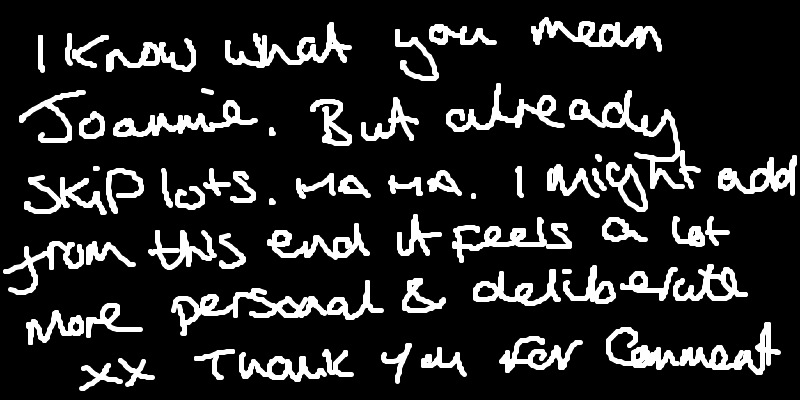 I know what you mean
Joannie. But already
skip lots. HA HA. I might add
from this end it feels a lot
more personal & deliberate
xx Thank you for comment